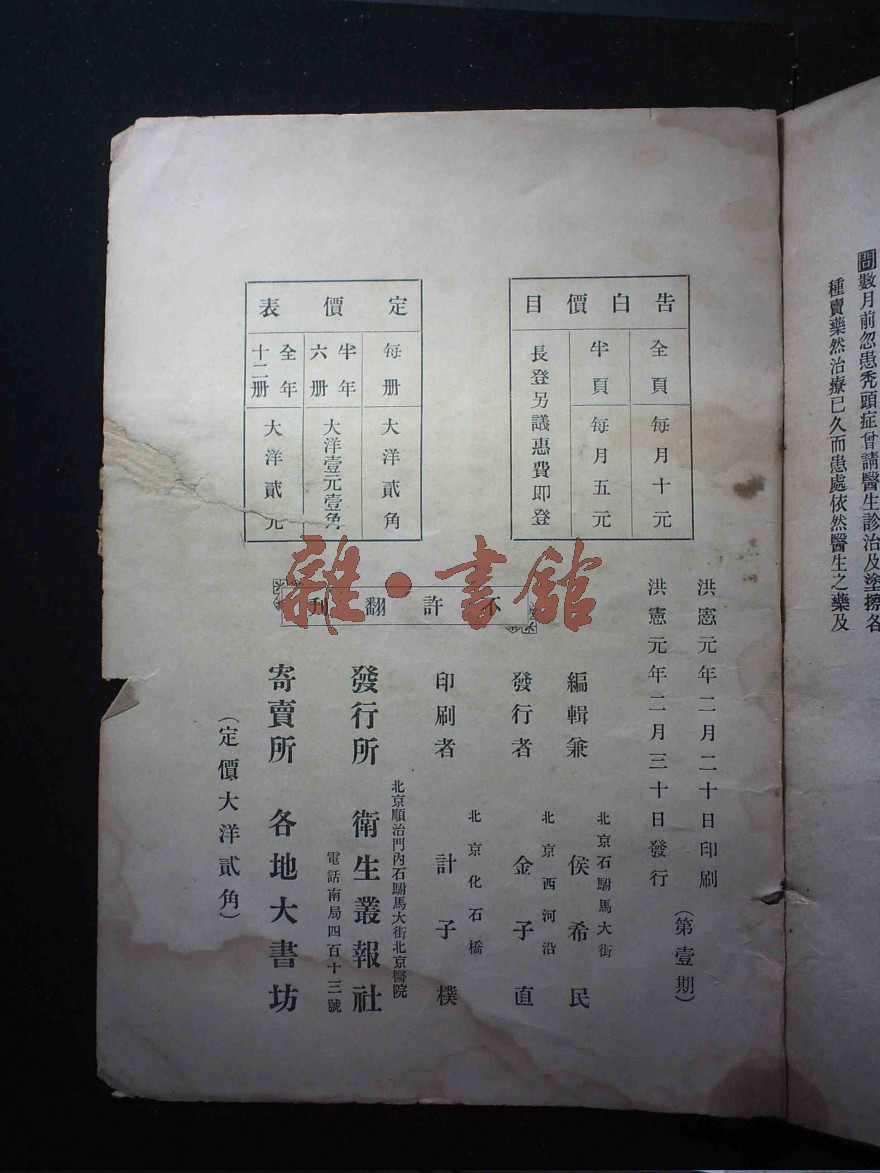 問數月前忽患禿頭症曾請醫生診治及塗擦各
種賣藥然治療已久而患處依然醫生之藥及
告白價目
全頁每月十元
半頁每月五元
長登另議惠費即登
定價表
每册大洋貳角
半年六册大洋壹元壹角
全年十二册大洋貳元
洪憲元年二月二十日印刷
洪憲元年二月三十日發行
(第壹期)
不許翻刊
編輯兼
北京石駙馬大街
侯希民
發行者
北京西河沿
金子直
印刷者
北京化石橋
計子樸
北京順治門內石駙馬大街北京醫院
發行所 衛生叢報社
電話南局四百十三號
寄賣所 各地大書坊
(定價大洋貳角)
雜·書館